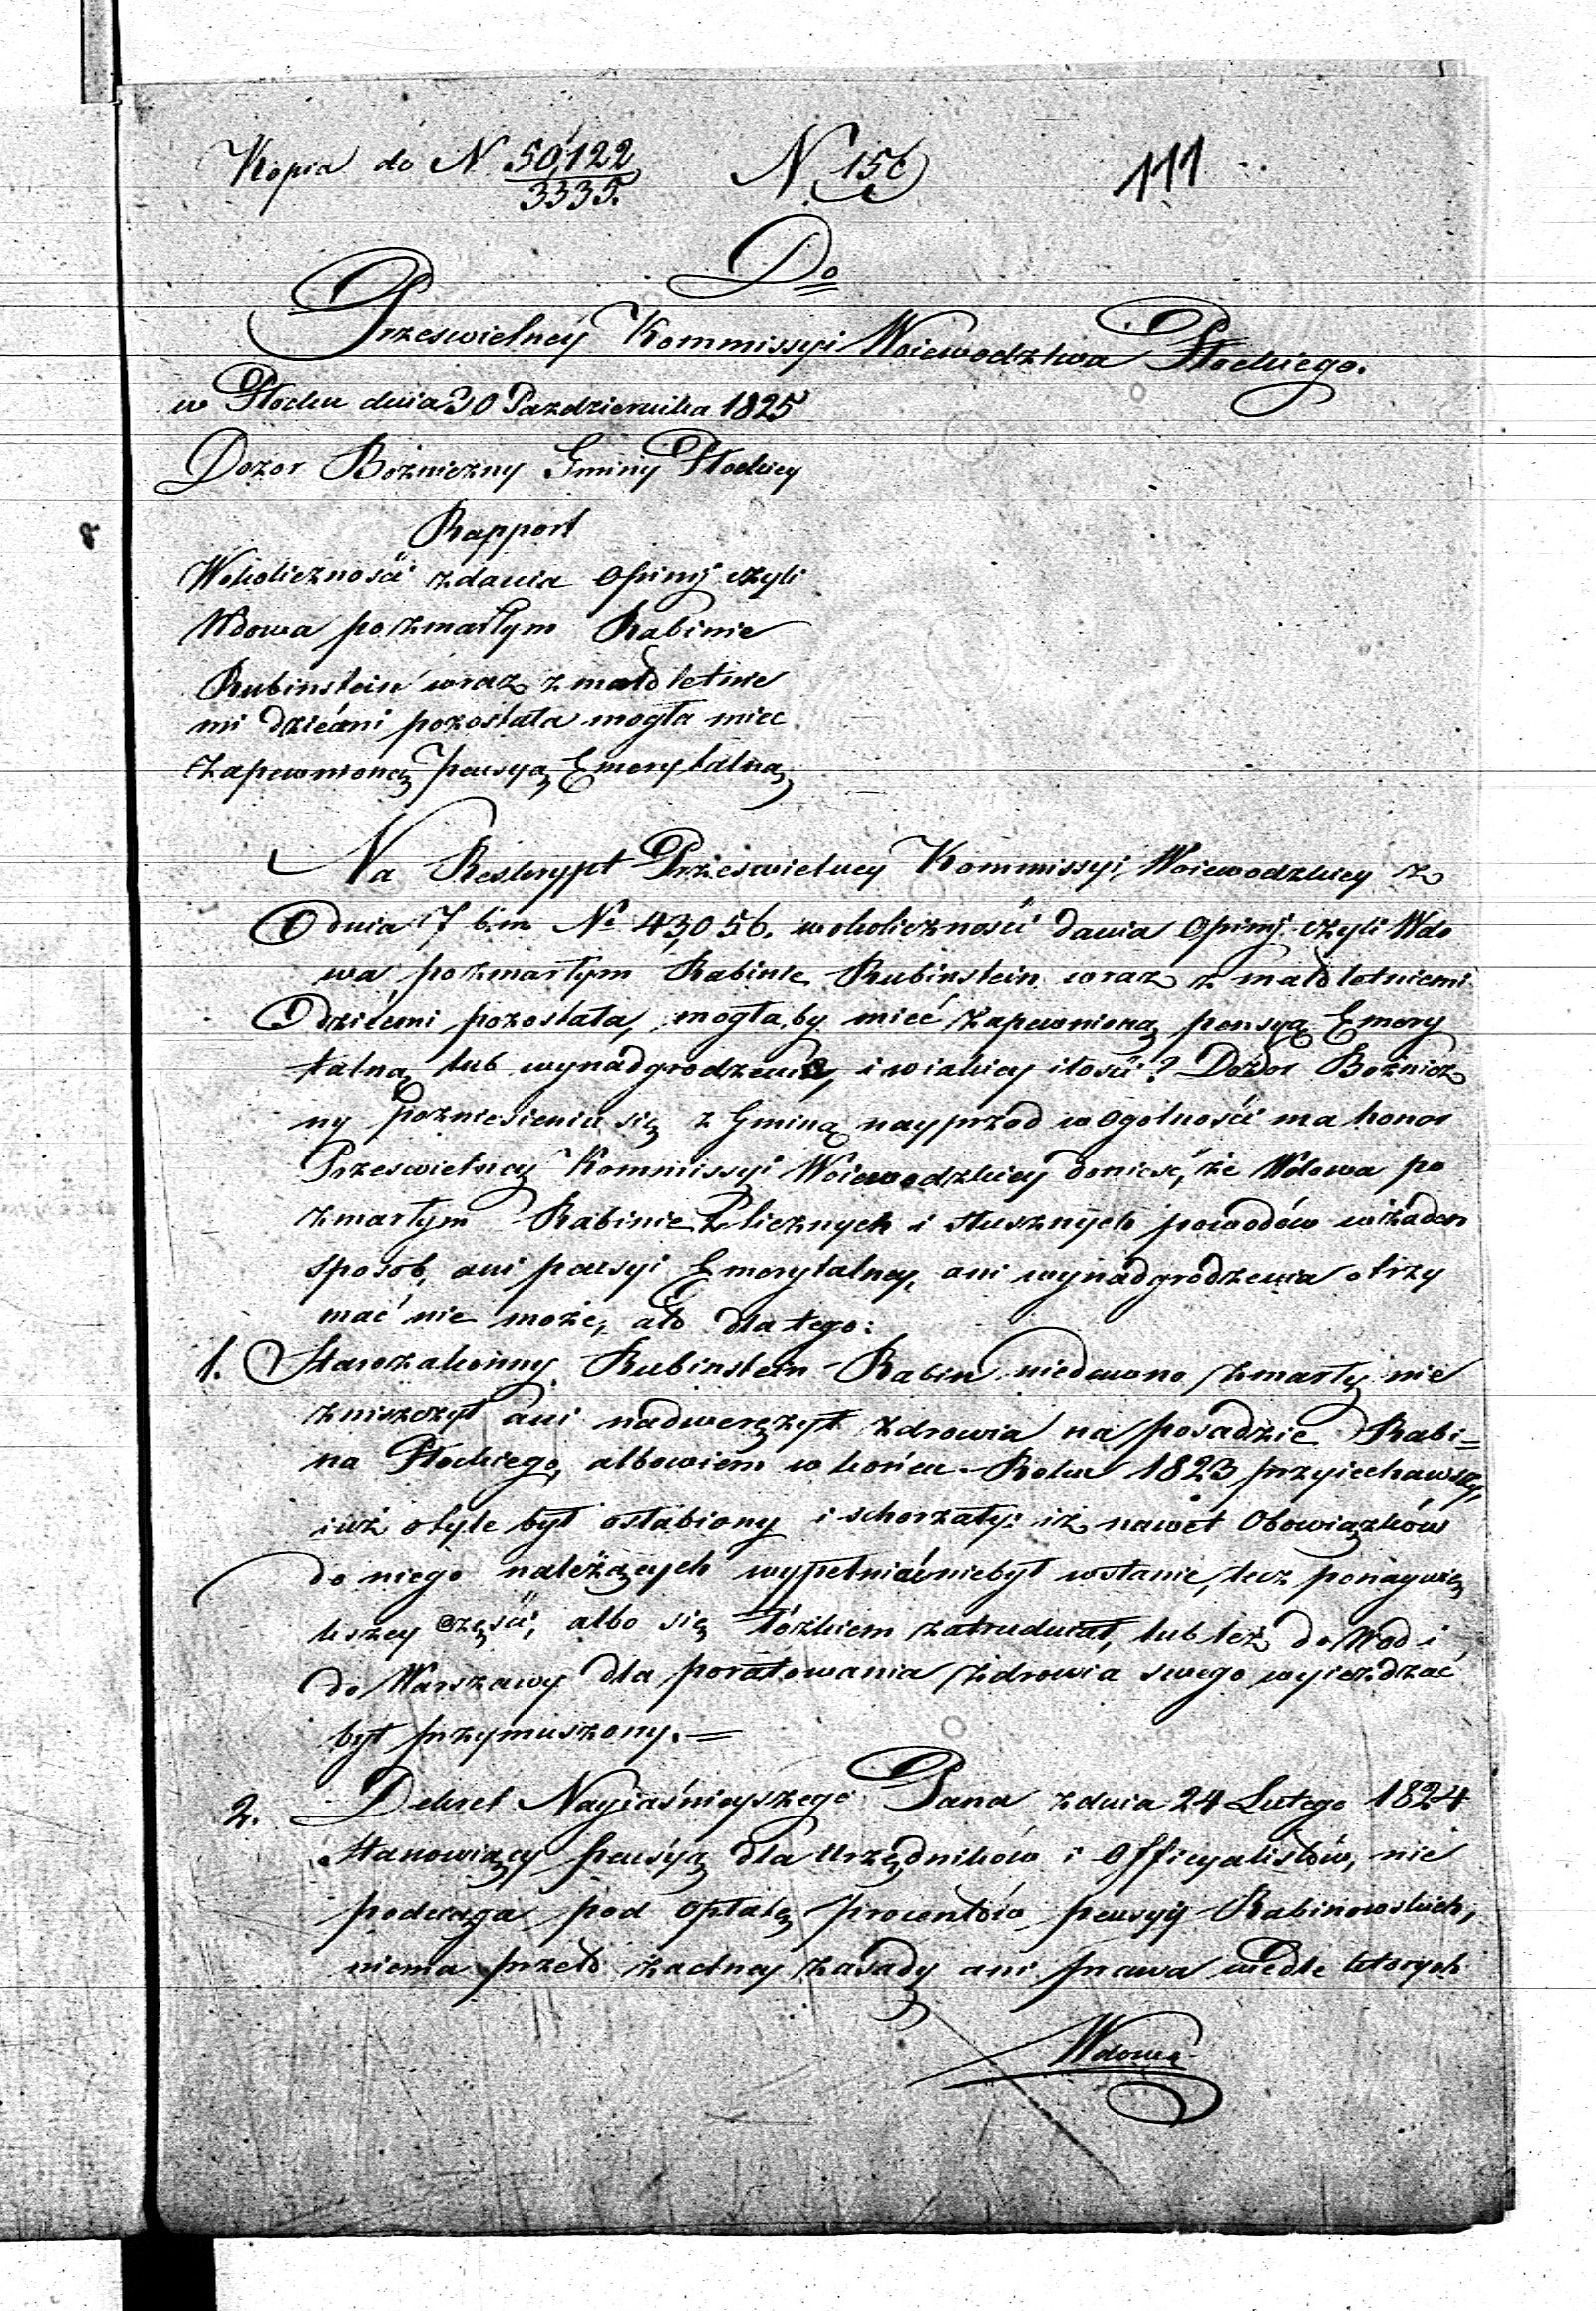 Kopia do N 50,122
3335.
N. 156
111
Do
Prześwietnéy Kommissyi Woiewodztwa Płockiego.
w Płocku dnia 30 Pazdziernika 1825
Dozor Bożniczny Gminy Płockiey
Rapport
Wokoliczności zdania Opinij czyli
Wdowa pozmarłym Rabinie
Rubinstein wraz z małoletnie
mi dziećmi pozostała mogła miec
zapewnioną pensyą Emerytalną
Na Reskrypt Prześwietney Kommissyi Woiewodzkiey z
dnia 17 b.m. No 43,056. wokoliczności dania Opinij czyli Wdo
wa pozmarłym Rabinie Rubinstein wraz z małoletniemi
dziećmi pozostała, mogłaby mieć zapewnioną pensyą Emery
talną lub wynadgrodzenie, i wiakiey ilości? Dozor Bożnicz
ny pozniesieniu się z Gminą nayprzod wogolności ma honor
Prześwietney Kommissyi Woiewodzkiey donieść, że Wdowa po
zmarłym Rabinie z licznych i słusznych powodów wżaden
sposób, ani pensyi Emerytalney, ani wynadgrodzenia otrzy
mać nie może, a to dla tego:
1. Starozakonny Rubinstein Rabin niedawno zmarły nie
zniszczył ani nadweręzył zdrowia na posadzie Rabi=
na Płockiego, albowiem w końcu Roku 1823 przyiechawszy,
iuż otyle był osłabiony i schorzały: iż nawet Obowiązków
do niego należących wypełniać niebył wstanie, lecz ponaywię
kszey części, albo się łóżkiem zatrudniał, lub też do Wod i
do Warszawy dla poratowania zdrowia swego wyieżdzać
był przymuszony. =
2. Dekret Nayiaśnieyszego Pana zdnia 24 Lutego 1824
stanowiący pensyą dla Urzędników i Officyalistów, nie
podciąga pod opłatę procentów pensyy Rabinowskich,
niema przeto żadney zasady ani prawa wedle ktorych
Wdowa